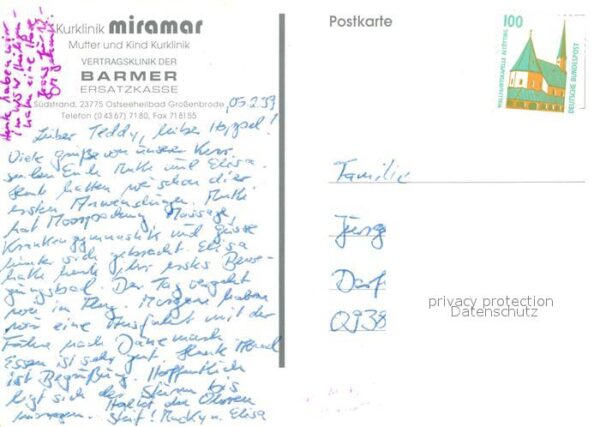 Kurklinik miramar
Mutter und Kind Kurklinik
VERTRAGSKLINIK DER
BARMER
ERSATZKASSE
Südstrand, 23775 Ostseeheilbad Großenbrode,
Telefon (0 43 67) 71 80, Fax 71 81 55
Lieber Teddy, lieber Hoppel!
Viele Grüße von unserer Kur
senden Euch Mutti und Elisa.
Heute hatten wir schon die
ersten Anwendungen. Mutti
hat Moorpackung Massage,
Krankengymnastik und Güsse
hinter sich gebracht. Elisa
hatte heute ihr erstes Bewe-
gungsbad. Der Tag vergeht
wie im Flug. Morgen haben
wir eine Ausfahrt mit der
Fähre nach Dänemark
Essen ist sehr gut. Heute Abend
ist Begrüßung. Hoffentlich
legt sich der Sturm bis
morgen. Haltet die Ohren
steif! Mutti u. Elisa
Heute haben wir
Postkarte
100
WALLFAHRTSKAPELLE ALTÖTTING
DEUTSCHE BUNDESPOST
Familie
Jürg
Dorf
privacy protection
Datenschutz